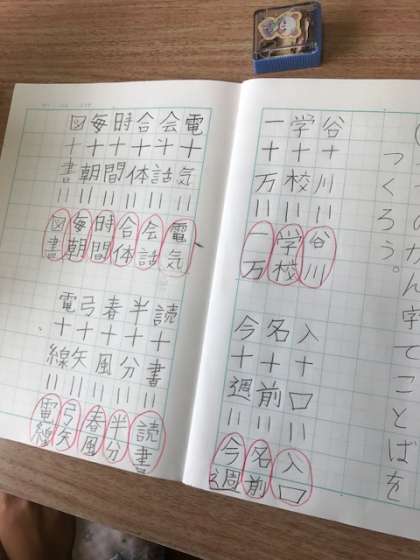 のかん字でことばを
つくろう。
谷+川=谷川
学+校=学校
一+万=一万
入+口=入口
名+前=名前
今+週=今週
電+気=電気
会+話=会話
合+体=合体
時+間=時間
毎+朝=毎朝
図+書=図書
読+書=読書
半+分=半分
春+風=春風
弓+矢=弓矢
電+線=電線